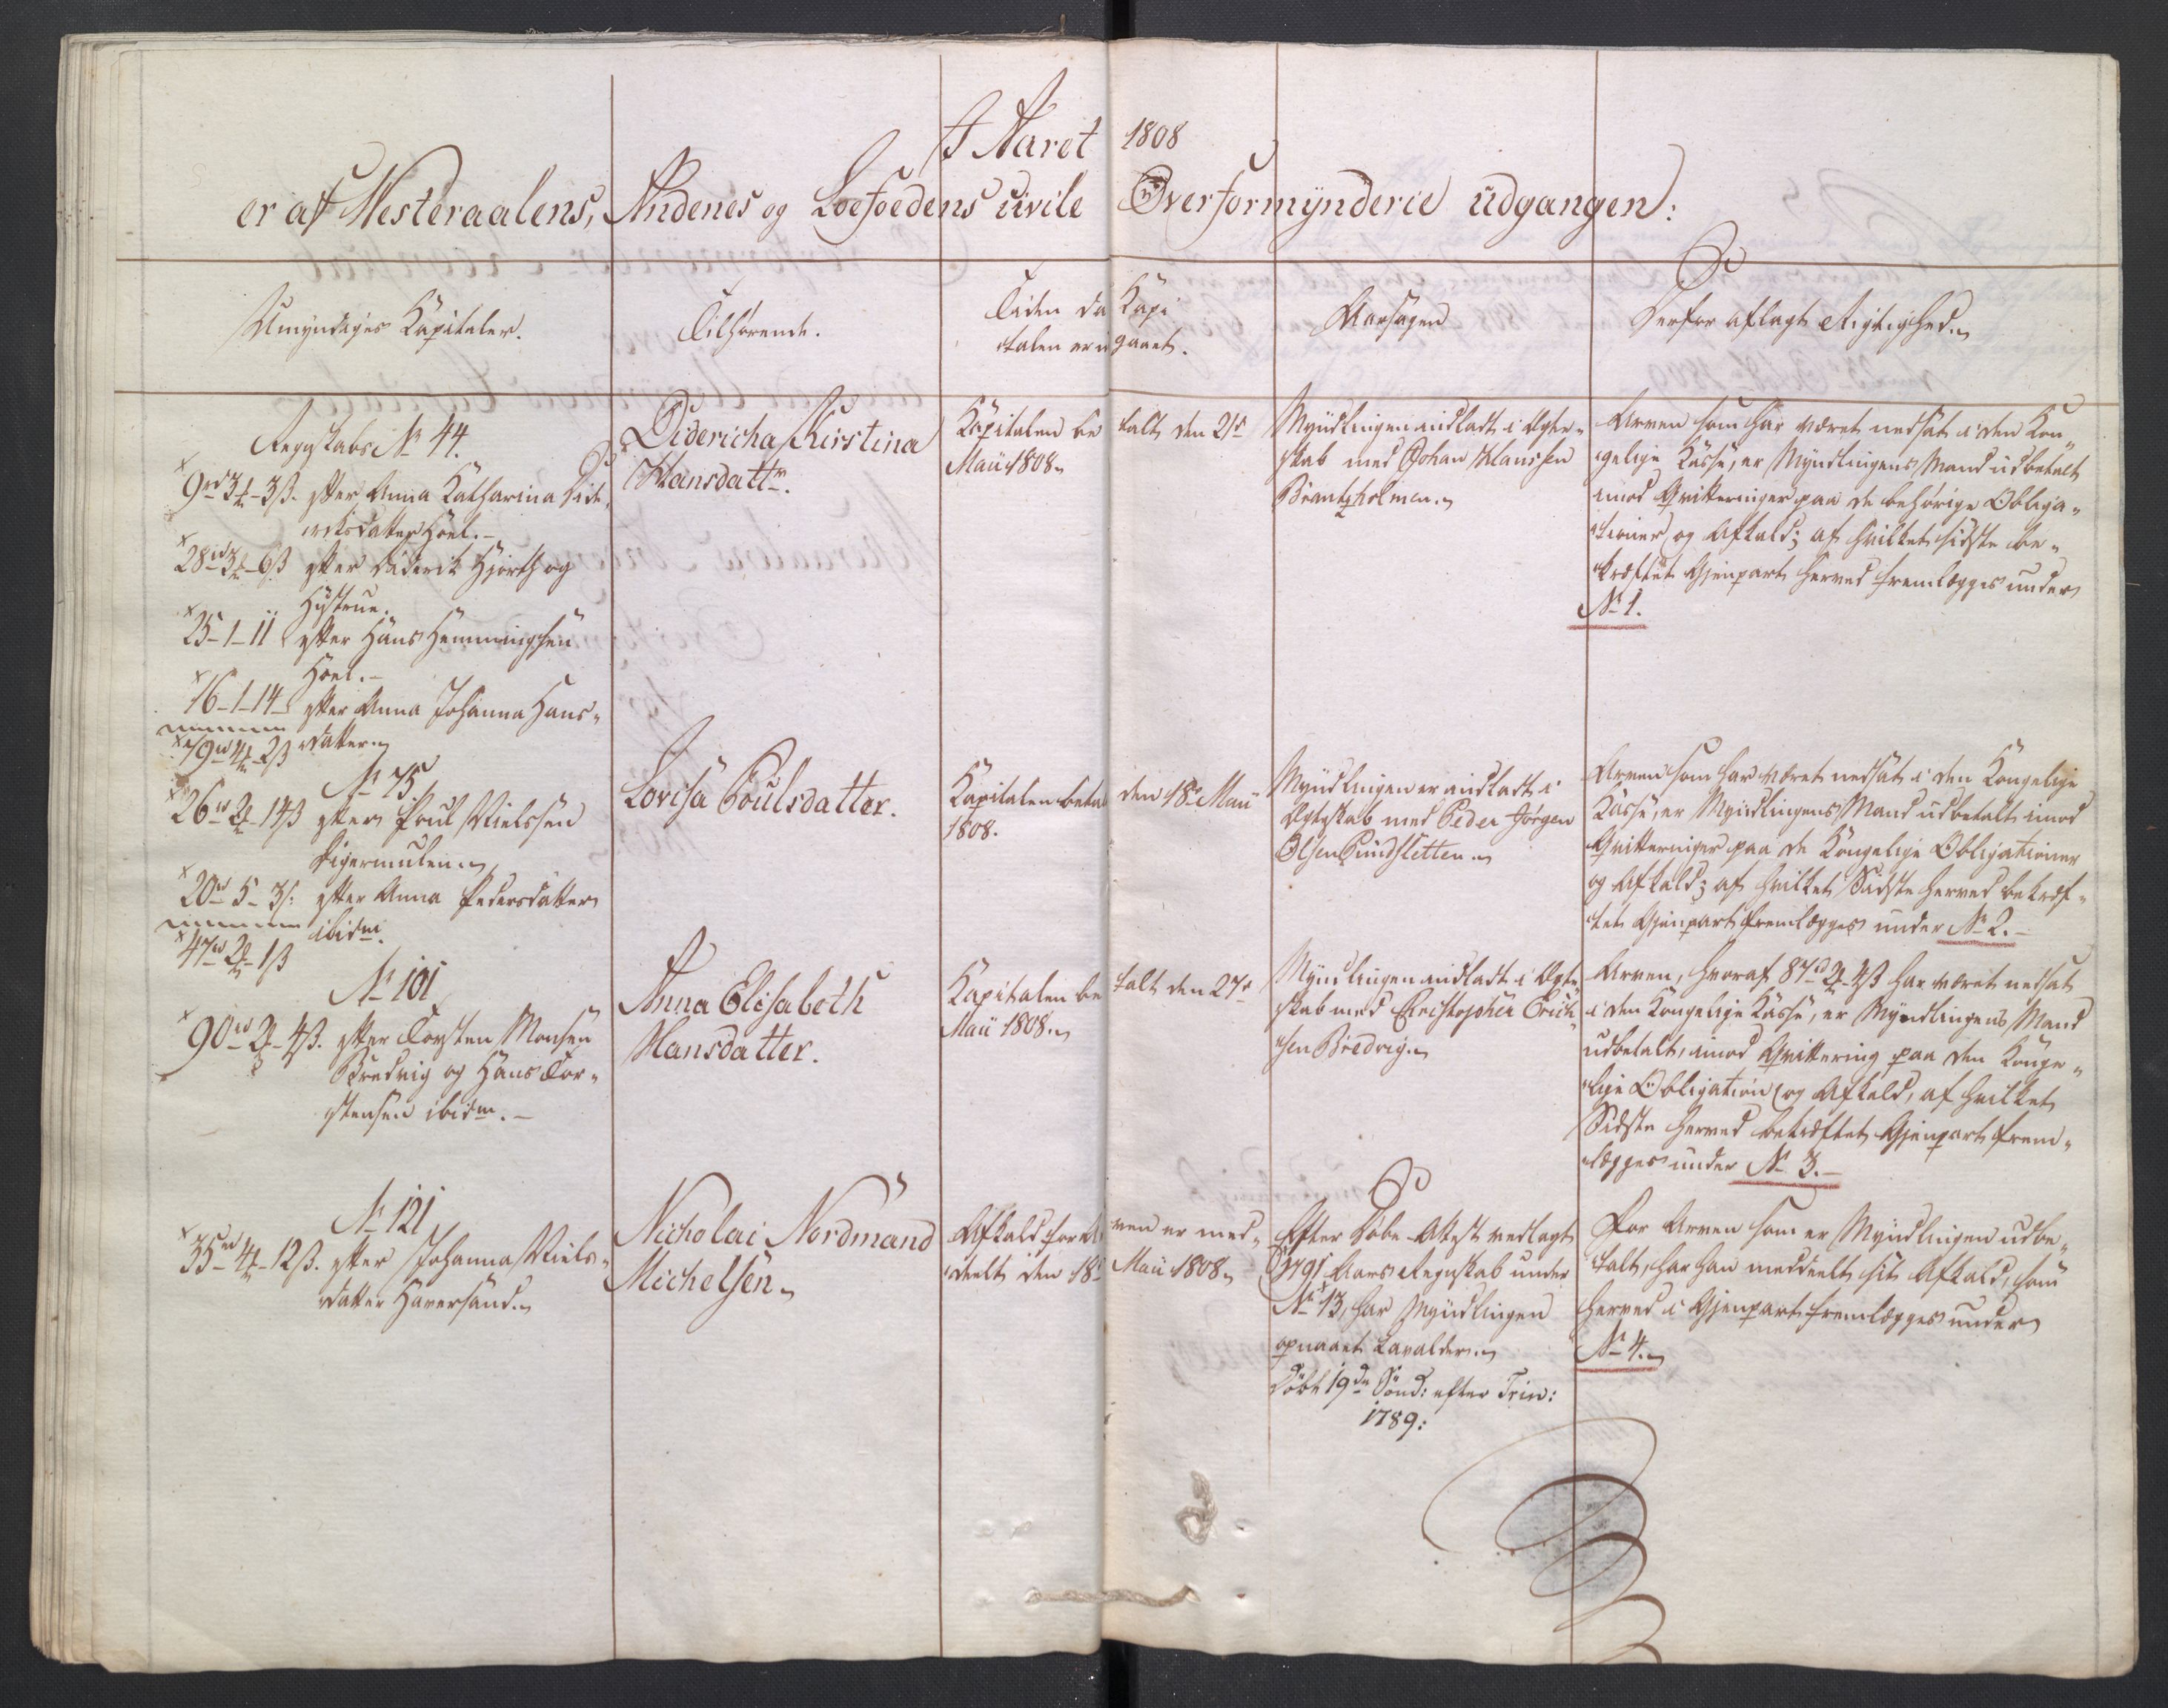 I Aaret 1808
er af Westeraalens, Andenes og Loefoedens civile Overformÿnderie udgangen:
Umyndiges Kapitaler.
Tilhørende.
Tiden da Kapi
talen er udgaaet.
Aarsagen
Derfor aflagt Rigtighed.
Regnskabs No 44.
9rd 3 ort 3 ß. efter Anna Katharina Dide„
richsdatter Hoel.–
28rd 3 ort 6 ß efter Diderik Hjorth og
Hustrue.
25–1–11 efter Hans Hemmingsen
Hoel.–
16–1–14 efter Anna Johanna Hans„
datter
79rd 4 ort 2 ß
Didericha Kirstina
Hansdattr.
Kapitalen be talt den 21de
Maii 1808
Myndlingen indladt i Ægte„
skab med Johan Klaussen
Brantsholmen.
Arven som har været nedsat i den Kon„
gelige Kasse, er Myndlingens Mand udbetalt
imod Qvitteringer paa de behørige Obliga„
tioner og Afkald; af hvilket sidste be„
kræftet Gjenpart herved fremlægges under
No 1.
No 75
26rd 2 ort 14 ß efter Poul Nielssen
Digermulen
20rd 5–3/: efter Anna Pedersdatter
ibidm.
47rd 2 ort 1 ß
Lovisa Poulsdatter.
Kapitalen betalt den 18de Maii
1808.
Myndlingen er indladt i
Ægteskab med Peder Jørgen
Olsen Sundsletten
Arven som har været nedsat i den Kongelige
Kasse, er Myndlingens Mand udbetalt imod
Qvitteringer paa de Kongelige Obligationer
og Afkald; af hvilket Sidste herved bekræf„
tet Gjenpart fremlægges under No 2.–
No 101
90rd 2 ort 4 ß. efter Torsten Monsen
Bredvig og Hans Tor„
stensen ibidm.–
Anna Elisabeth
Hansdatter.
Kapitalen be talt den 27de
Maii 1808
Myndlingen indladt i Ægte„
skab med Christopher Erich„
sen Bredvig.
Arven, hvoraf 87rd 2 ort 4 ß har været nedsat
i den Kongelige Kasse, er Myndlingens Mand
udbetalt, imod Qvittering paa den Konge„
lige Obligation og Afkald, af hvilket
Sidste herved bekræftet Gjenpart frem„
lægges under No 3.–
No 121
35rd 4 ort 12 ß. efter Johanna Niels„
datter Haversand.
Nicholai Nordmand
Michelsen
Afkald for Arven er med„
deelt den 18de Maii 1808
Efter Døbe Attest vedlagt
1791 Aars Regnskab under
No 13, har Myndlingen
opnaaet Lavalder.
Døbt 19de Sönd: efter Trin:
1789:
For Arven som er Myndlingen udbe„
talt, har han meddeelt sit Afkald, som
herved i Gjenpart fremlægges under
No 4.